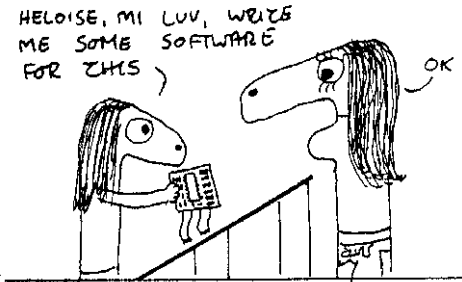 HELOISE, MI LUV, WRITE
ME SOME SOFTWARE
FOR THIS
OK